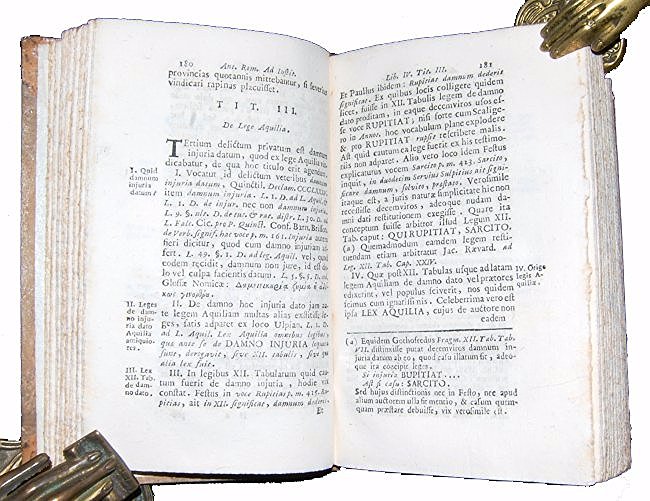 180 Ant. Rom. Ad Instit.
provincias quotannis mittebantur, si severius
vindicari rapinas placuisset.
TIT. III.
De Lege Aquilia.
Tertium delictum privatum est damnum
injuria datum, quod ex lege Aquilia vin-
dicabatur, de qua hoc titulo erit agendum.
I. Quid
damnum
injuria
datum?
I. Vocatur id delictum veteribus damnum
injuria datum, Quinctil. Declam.
item damnum injuria. L. 1. D. ad L. Aquil. &
L. 1. D. de injur. nec non damnum injuriæ.
L. 9. §. ult. D. de tut. & rat. distr. L. 30. D. ad
L. Falc. Cic. pro P. Quinct. Conf. Barn. Briss.
de Verb. signif. hac voce p. m. 161. Injuria autem
fieri dicitur, quod cum damno injuriam af-
fert. L. 49. §. 1. D. ad leg. Aquil. vel, quod
eodem recidit, damnum non jure, id est do-
lo vel culpa facientis datum. L. 5. §. 1. D. ad
Glossæ Nomicæ:
II. Leges
de dam-
no inju-
ria dato
Aquilia
antiquio-
res.
II. De damno hoc injuria dato jam an-
te legem Aquiliam multas alias exstitisse le-
ges, satis adparet ex loco Ulpian. L. 1. D.
ad L. Aquil. Lex Aquilia omnibus legibus,
quæ ante se de DAMNO INJURIA loquutæ
sunt, derogavit, sive XII. tabulis, sive quæ
alia lex fuit.
III. Lex
XII. Tab.
de dam-
no dato.
III. In legibus XII. Tabularum quid cau-
tum fuerit de damno injuria, hodie vix
constat. Festus in voce Rupitias p. m. 425. Ru-
pitias, ait in XII. significat, damnum dederis.
Et
Lib. IV. Tit. III. 181
Et Paullus ibidem: Rupitias damnum dederis
significat. Ex quibus locis colligere quidem
licet, fuisse in XII. Tabulis legem de damno
dato proditam, in eaque decemviros usos es-
se voce RUPITIAT; nisi forte cum Scalige-
ro in Anno. hoc vocabulum plane explodere
& pro RUPITIAT rupsit rescribere malis.
Ast quid cautum ea lege fuerit ex his testimo-
niis non adparet. Alio vero loco idem Festus
explicaturus vocem Sarcito p. m. 423. Sarcito,
inquit, in duodecim Servius Sulpitius ait signifi-
care damnum, solvito, præstato. Verosimile
itaque est, a juris naturæ simplicitate hic non
recessisse decemviros, adeoque nudam dam-
ni dati restitutionem exegisse. Quare ita
conceptum fuisse arbitror illud Legum XII.
Tab. caput: QUI RUPITIAT, SARCITO.
(a) Quemadmodum eamdem legem resti-
tuendam etiam arbitratur Jac. Rævard. ad
Leg. XII. Tab. Cap. XXIV.
IV. Orig.
legis A-
quiliæ.
IV. Quæ post XII. Tabulas usque ad latam
legem Aquiliam de damno dato vel prætores
edixerint, vel populus sciverit, nos quidem
scimus cum ignarissimis. Celeberrima vero est
ipsa LEX AQUILIA, cujus de auctore non
eadem
(a) Equidem Gothofredus Fragm. XII. Tab. Tab.
VII. distinxisse putat decemviros damnum inju-
ria datum ab eo, quod casu illatum sit, adeo-
que ita concipit leges.
Si injuria BUPITIAT....
Ast si casu: SARCITO.
Sed hujus distinctionis nec in Festo, nec apud
alium auctorem ulla fit mentio, & casum quem-
quam præstare debuisse, vix verosimile est.